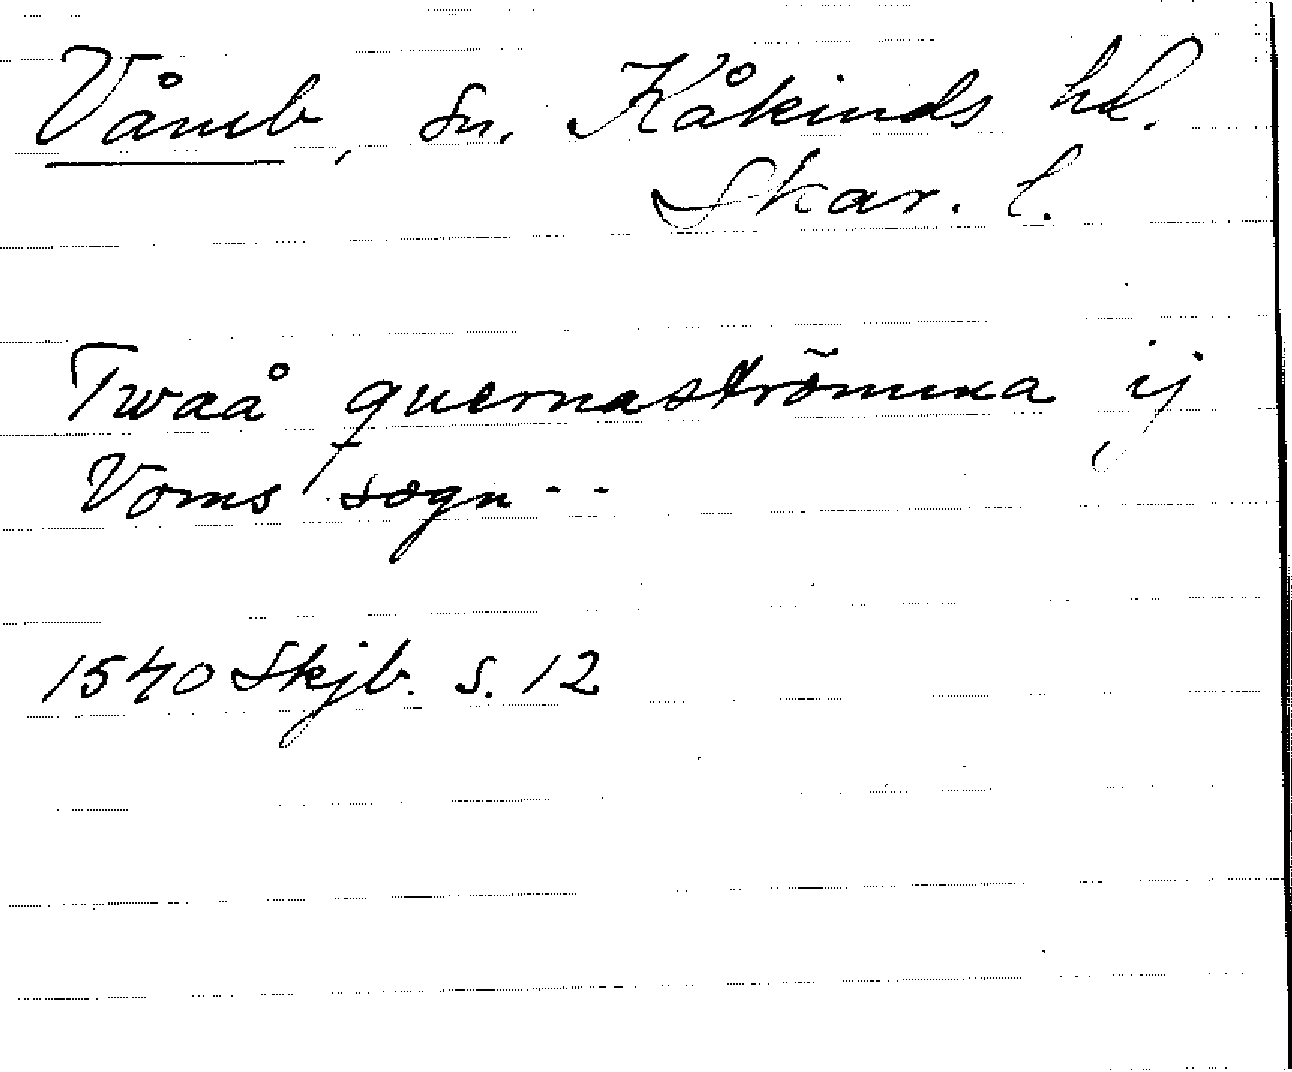 Våmb, sn. Kåkinds hd.
Skar. l.
Twaå quernaströmma ij
Voms sogn - -
1540 Skjb. s. 12